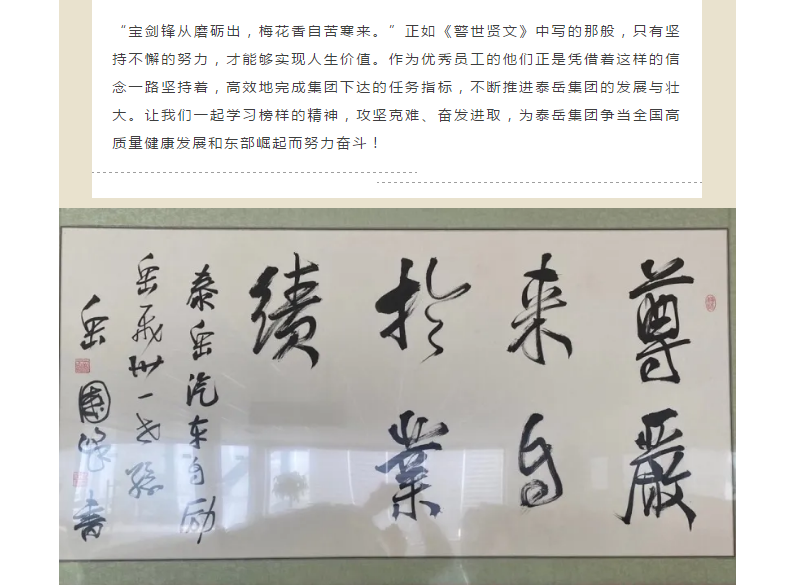 “宝剑锋从磨砺出，梅花香自苦寒来。”正如《警世贤文》中写的那般，只有坚
持不懈的努力，才能够实现人生价值。作为优秀员工的他们正是凭借着这样的信
念一路坚持着，高效地完成集团下达的任务指标，不断推进泰岳集团的发展与壮
大。让我们一起学习榜样的精神，攻坚克难、奋发进取，为泰岳集团争当全国高
质量健康发展和东部崛起而努力奋斗！
尊嚴
来自
於業
績
泰岳汽车自励
岳飛卅一世孫
岳國書